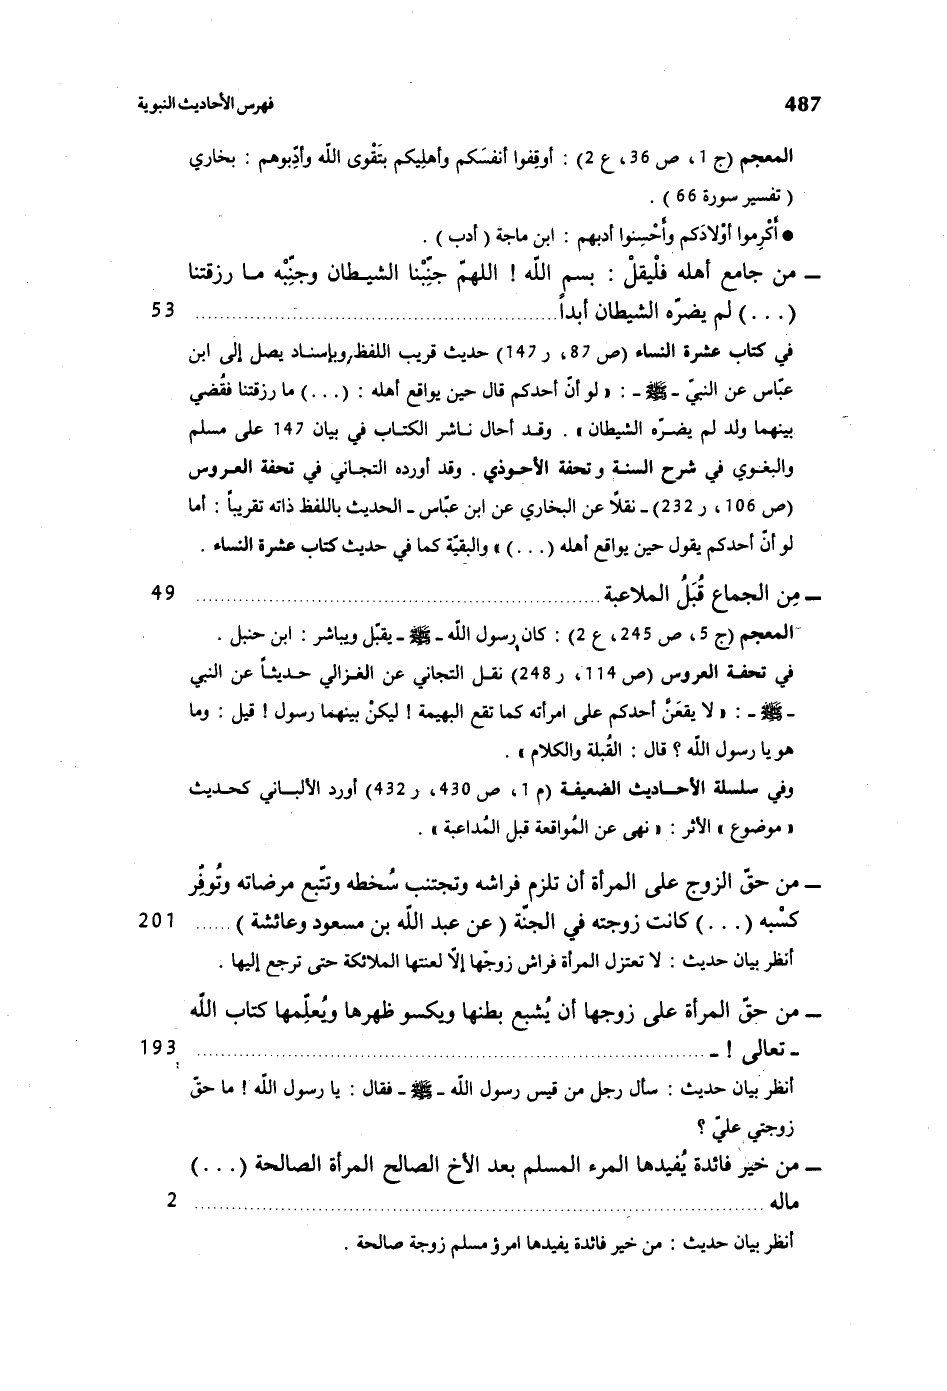 487 فهرس الأحاديث النبوية
المعجم (ج 1، ص 36، ع 2) : أوقِفوا أنفسَكم وأهلِيكم بتَقْوى اللّه وأدِّبوهم : بخاري
( تفسير سورة 66 ) .
● أَكْرِموا أوْلادَكم وأَحْسِنوا أدبهم : ابن ماجة ( أدب ) .
ــ من جامع أهله فلْيقلْ : بسم اللّه ! اللهمّ جنِّبْنا الشيـطان وجنِّبْه مـا رزقتنا
( . . . ) لم يضرّه الشيطان أبداً ........................................ 53
في كتاب عشرة النساء (ص 87، ر 147) حديث قريب اللفظ وبإسنـاد يصل إلى ابن
عبّاس عن النبيّ ـ ﷺ ـ : « لو أنّ أحدكم قال حين يواقع أهله : ( . . . ) ما رزقتنا فقُضي
بينهما ولد لم يضـرّه الشيطان » . وقـد أحال نـاشر الكتـاب في بيان 147 على مسلم
والبغـوي في شرح السنـة و تحفة الأحـوذي . وقد أورده التجـاني في تحفة العـروس
(ص 106، ر 232) ـ نقلاً عن البخاري عن ابن عبّاس ـ الحديث باللفظ ذاته تقريباً : أما
لو أنّ أحدكم يقول حين يواقع أهله ( . . . ) » والبقيّة كما في حديث كتاب عشرة النساء .
ــ مِن الجماع قُبَلُ الملاعبة ........................................ 49
المعجم (ج 5، ص 245، ع 2) : كان رسول اللّه ـ ﷺ ـ يقبّل ويباشر : ابن حنبل .
في تحفـة العروس (ص 114، ر 248) نقـل التجاني عن الغـزالي حـديثـاً عن النبي
ـ ﷺ ـ : « لا يقعَنَّ أحدكم على امرأته كما تقع البهيمة ! ليكنْ بينهما رسول ! قيل : وما
هو يا رسول اللّه ؟ قال : القُبلة والكلام » .
وفي سلسلة الأحـاديث الضعيفـة (م 1، ص 430، ر 432) أورد الألبـاني كحـديث
« موضوع » الأثر : « نهى عن المُواقعة قبل المُداعبة » .
ــ من حقّ الزوج على المرأة أن تلزم فراشه وتجتنب سُخطه وتتّبع مرضاته وتُوفِّر
كسْبه ( . . . ) كانت زوجته في الجنّة ( عن عبد اللّه بن مسعود وعائشة ) ...... 201
أنظر بيان حديث : لا تعتزل المرأة فراش زوجها إلاّ لعنتها الملائكة حتى ترجع إليها .
ــ من حقّ المرأة على زوجها أن يُشبع بطنها ويكسو ظهرها ويُعلِّمها كتاب اللّه
ـ تعالى ! ـ ........................................ 193
أنظر بيان حديث : سأل رجل من قيس رسول اللّه ـ ﷺ ـ فقال : يا رسول اللّه ! ما حقّ
زوجتي عليّ ؟
ــ من خير فائدة يُفيدها المرء المسلم بعد الأخ الصالح المرأة الصالحة ( . . . )
ماله ........................................ 2
أنظر بيان حديث : من خير فائدة يفيدها امرؤ مسلم زوجة صالحة .